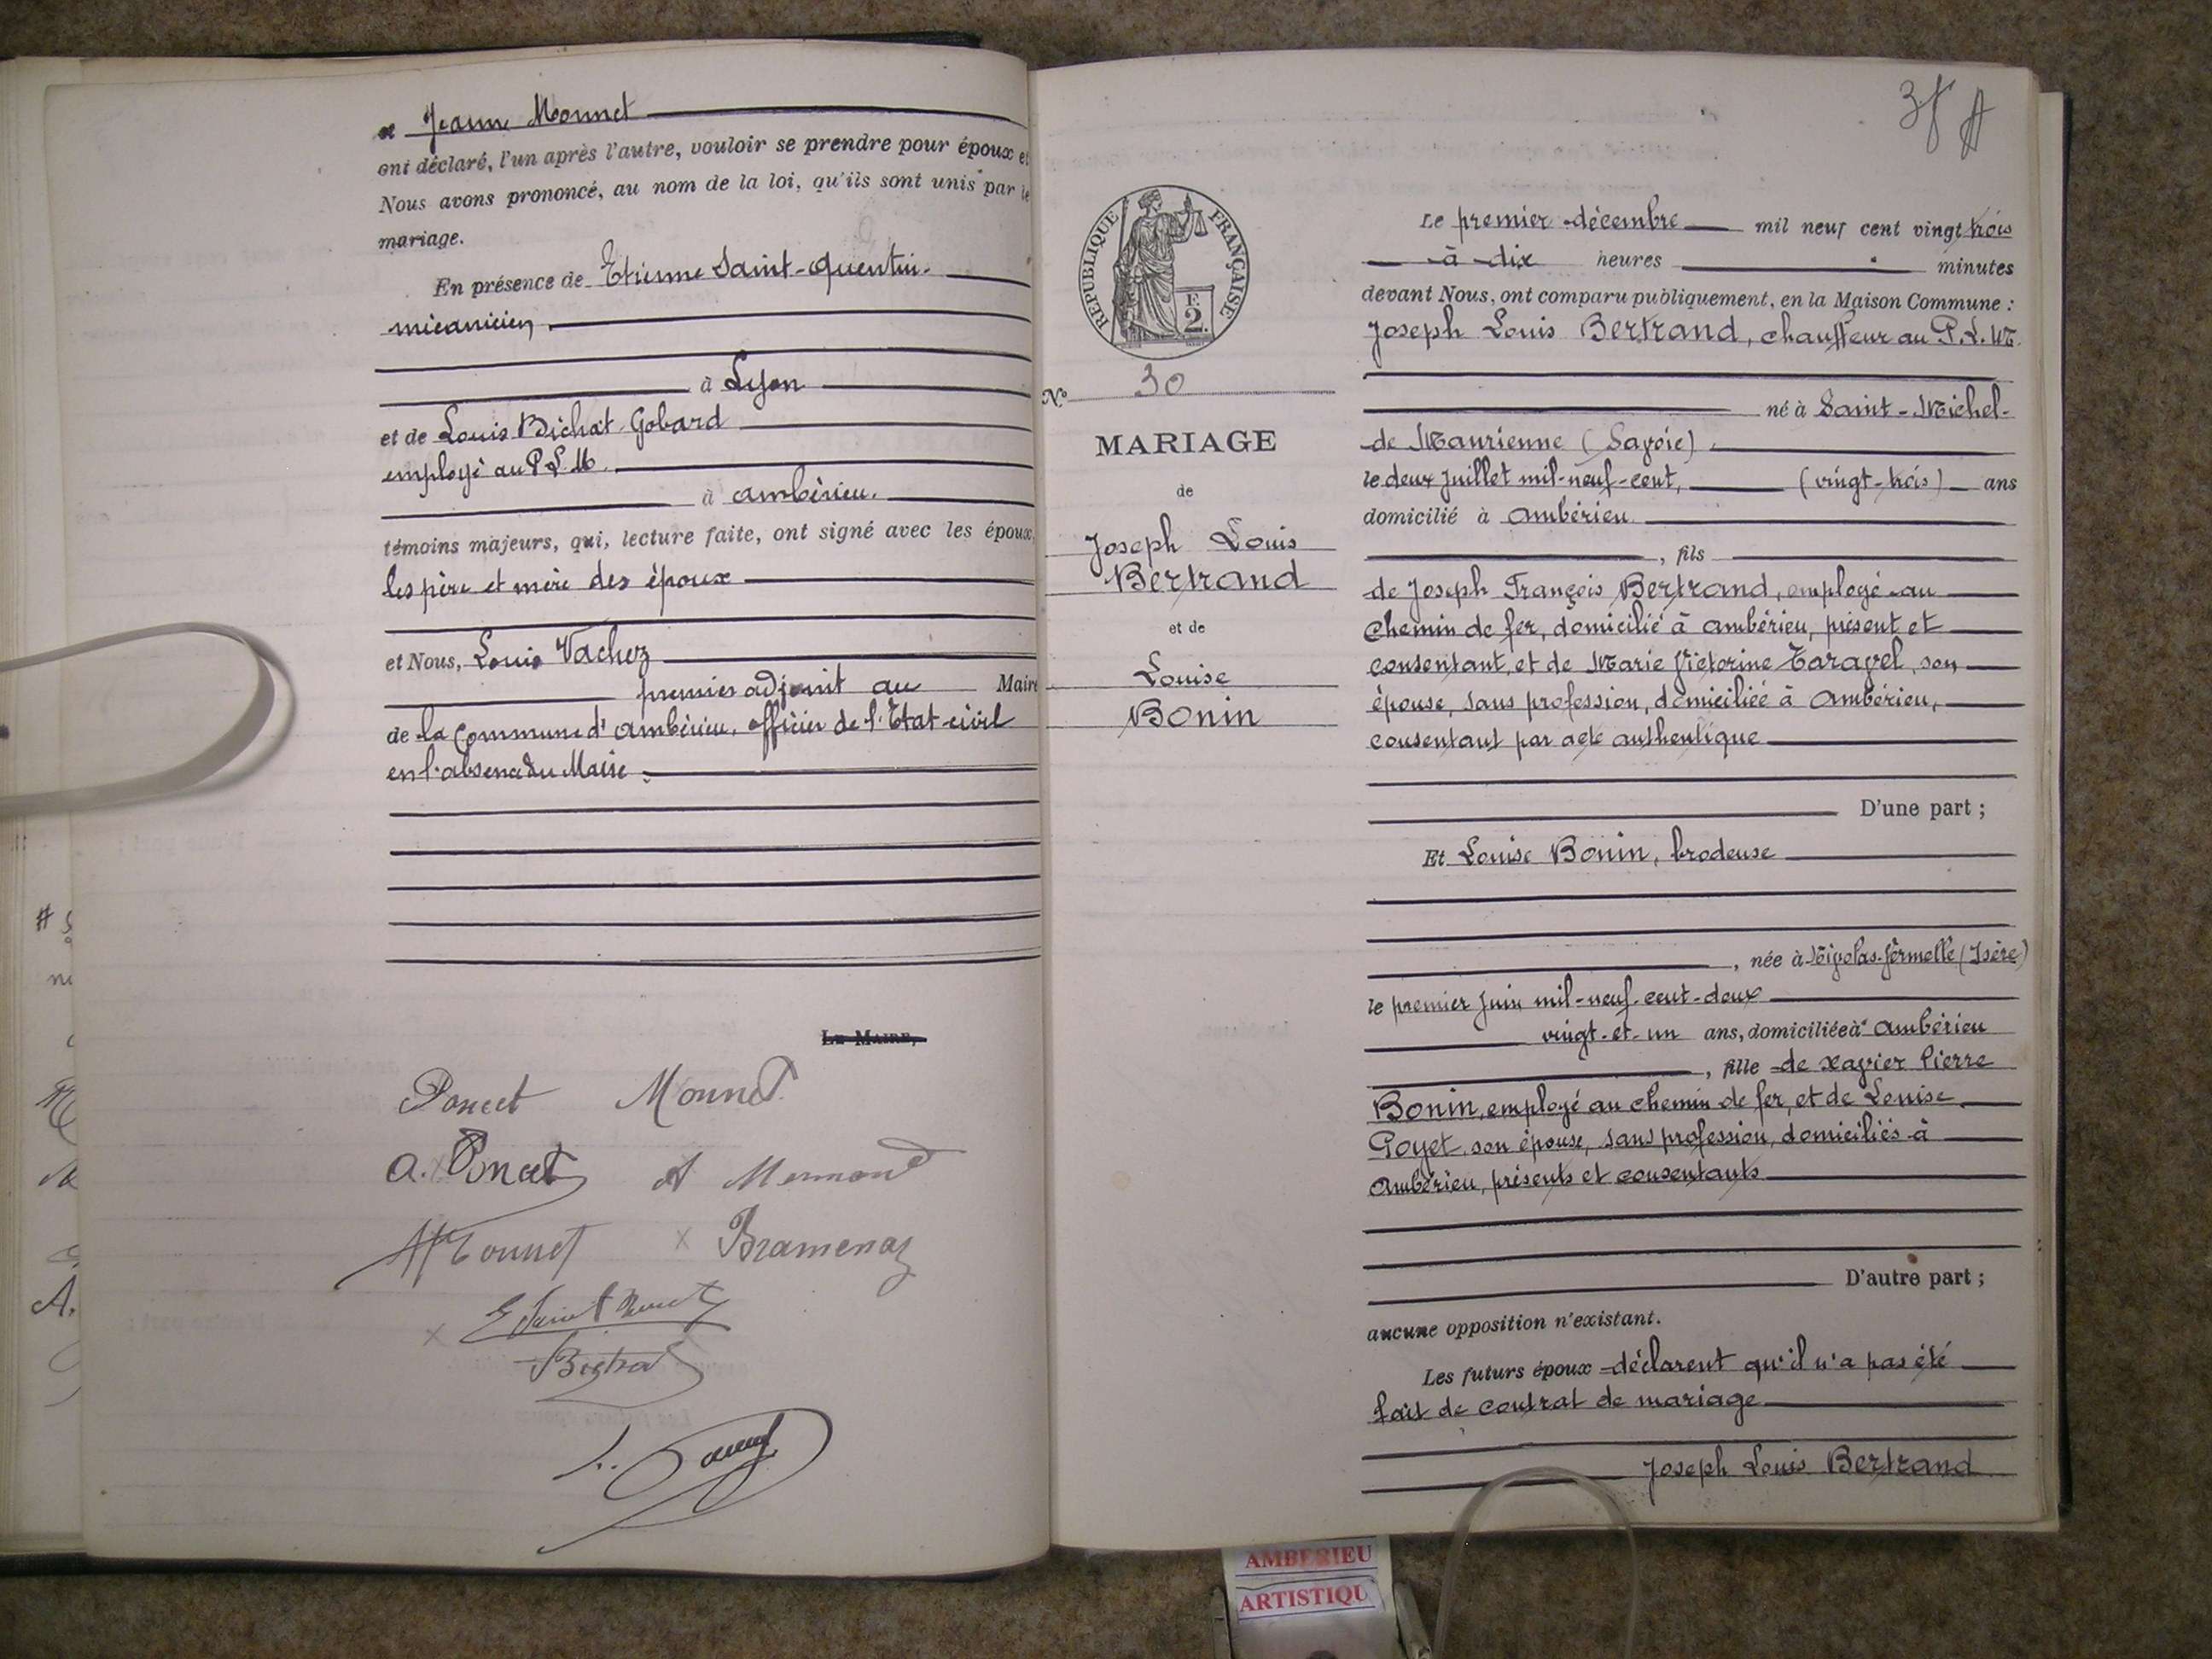 et Jeanne Monnet
ont déclaré, l'un après l'autre, vouloir se prendre pour époux et
Nous avons prononcé, au nom de la loi, qu'ils sont unis par le
mariage.
En présence de Etienne Saint-Quentin.
mécanicien
à Lyon
et de Louis Bichat-Gobard
employé au P.L.M.
à Ambérieu.
témoins majeurs, qui, lecture faite, ont signé avec les époux,
les père et mère des époux
et Nous, Louis Vachez
premier adjoint au Maire
de la Commune d'Ambérieu, officier de l'Etat-civil
en l'absence du Maire.
LE MAIRE,
Poncet Monnet
A. Poncet A Mermond
Monnet x Bramenaz
x E Saint Quentin
Bichat
L.
38
REPUBLIQUE FRANÇAISE
F.
2.
N° 30
MARIAGE
de
Joseph Louis
Bertrand
et de
Louise
Bonin
Le premier décembre mil neuf cent vingt trois
à dix heures minutes
devant Nous, ont comparu publiquement, en la Maison Commune :
Joseph Louis Bertrand, chauffeur au P.L.M.
né à Saint-Michel-
de Maurienne (Savoie).
le deux Juillet mil-neuf-cent, (vingt-trois) ans
domicilié à Ambérieu.
, fils
de Joseph François Bertrand, employé au
chemin de fer, domicilié à Ambérieu, présent et
consentant, et de Marie Victorine Taravel, son
épouse, sans profession, domiciliée à Ambérieu,
consentant par acte authentique
D'une part ;
Et Louise Bonin, brodeuse
, née à Nivolas-Vermelle (Isère)
le premier Juin mil-neuf-cent-deux
vingt-et-un ans, domiciliée à Ambérieu
, fille de Xavier Pierre
Bonin, employé au chemin de fer, et de Louise
Goyet, son épouse, sans profession, domiciliés à
Ambérieu, présents et consentants
D'autre part ;
aucune opposition n'existant.
Les futurs époux déclarent qu'il n'a pas été
fait de contrat de mariage
Joseph Louis Bertrand
AMBERIEU
ARTISTIQU